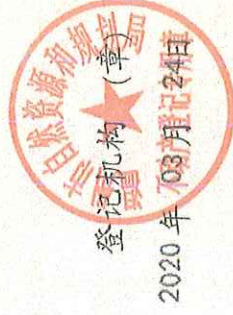 登记机构 (章)
2020 年 03 月 24日
自然资源和规划局
不动产登记专用章